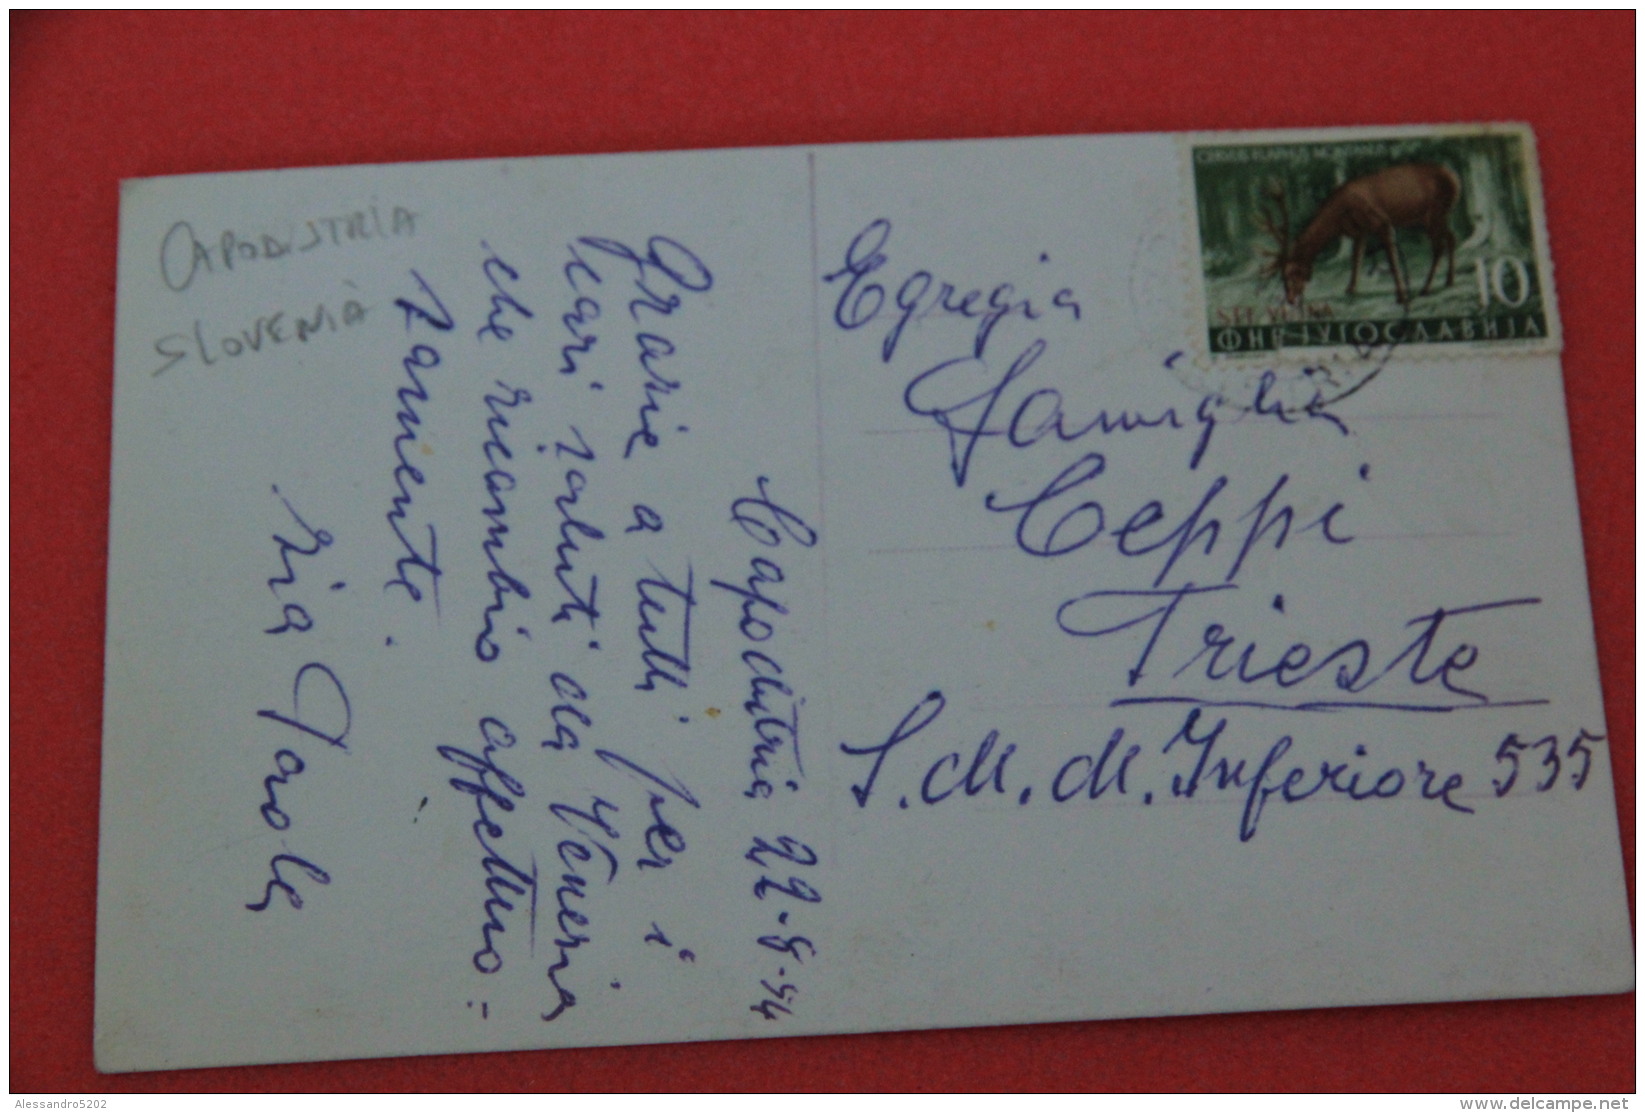 CAPODISTRIA
SLOVENIA
Capodistria 22.8.54
Grazie a tutti per i
cari saluti da Venezia
che ricambio affettuo=
samente.
Zia Paola
Egregia
Famiglia
Ceppi
Trieste
S.M.M. Inferiore 535
10
STT VUJNA
ФНР ЈУГОСЛАВИЈА
Alessandro5202
delcampe.net